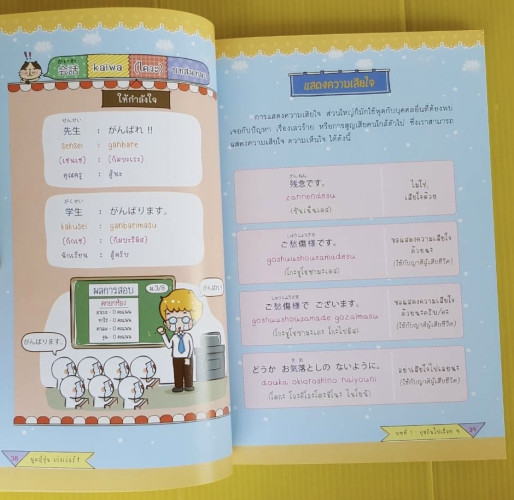 会話 kaiwa (ไควะ) บทสนทนา
ให้กำลังใจ
せんせい
先生 : がんばれ !!
sensei : ganbare
(เซนเซ) : (กัมบะเระ)
คุณครู : สู้นะ
がくせい
学生 : がんばります。
gakusei : ganbarimasu
(กักเซ) : (กัมบะริมัส)
นักเรียน : สู้ครับ
ผลการสอบ
ม.3/8
ตกยกห้อง
がんばれ!
がんばります。
38
แสดงความเสียใจ
การแสดงความเสียใจ ส่วนใหญ่ก็มักใช้พูดกับบุคคลอื่นที่ต้องพบ
เจอกับปัญหา เรื่องเลวร้าย หรือการสูญเสียคนใกล้ตัวไป ซึ่งเราสามารถ
แสดงความเสียใจ ความเห็นใจ ได้ดังนี้
ざんねん
残念です。
zannendesu
(ซันเน็นเดส)
แย่จัง,
เสียใจด้วย
ご愁傷様です。
goshuushousamadesu
(โกะชูโชซามะเดส)
ขอแสดงความเสียใจ
ด้วยนะ
(ใช้กับญาติผู้เสียชีวิต)
ご愁傷様で ございます。
goshuushousamade gozaimasu
(โกะชูโชซามะเดะ โกะไซมัส)
ขอแสดงความเสียใจ
ด้วยนะครับ/ค่ะ
(ใช้กับญาติผู้เสียชีวิต)
どうか お気落としの ないように。
douka okiotoshino naiyouni
อย่าเสียใจไปเลยนะ
(ใช้กับญาติผู้เสียชีวิต)
39